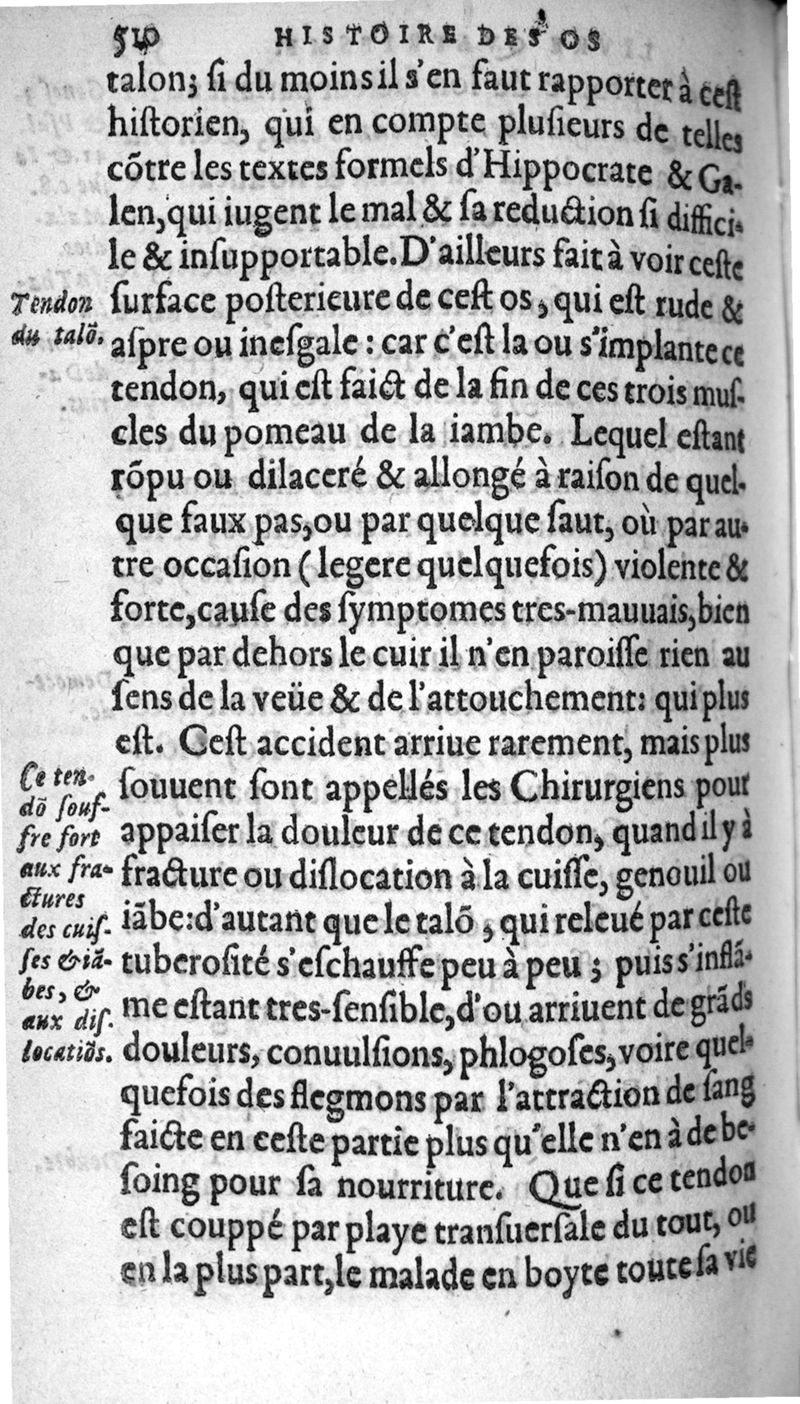 540 HISTOIRE DES OS
talon; ſi du moins il s'en faut rapporter à ceſt
hiſtorien, qui en compte pluſieurs de telles
cõtre les textes formels d'Hippocrate & Ga-
len, qui iugent le mal & ſa reduction ſi diffici-
le & inſupportable. D'ailleurs fait à voir ceſte
Tendon
du talõ.
ſurface poſterieure de ceſt os, qui eſt rude &
aſpre ou ineſgale : car c'eſt la ou s'implante ce
tendon, qui eſt faict de la fin de ces trois muſ-
cles du pomeau de la iambe. Lequel eſtant
rõpu ou dilaceré & allongé à raiſon de quel-
que faux pas, ou par quelque ſaut, où par au-
tre occaſion (legere quelquefois) violente &
forte, cauſe des ſymptomes tres-mauuais, bien
que par dehors le cuir il n'en paroiſſe rien au
ſens de la veüe & de l'attouchement: qui plus
eſt. Ceſt accident arriue rarement, mais plus
Ce ten-
dõ ſouf-
fre fort
aux fra-
ctures
des cuiſ-
ſes & iã-
bes, &
aux diſ-
locatiõs.
ſouuent ſont appellés les Chirurgiens pour
appaiſer la douleur de ce tendon, quand il y à
fracture ou diſlocation à la cuiſſe, genouil ou
iãbe: d'autant que le talõ, qui releué par ceſte
tuberoſité s'eſchauffe peu à peu ; puis s'inflã-
me eſtant tres-ſenſible, d'ou arriuent de grãds
douleurs, conuulſions, phlogoſes, voire quel-
quefois des flegmons par l'attraction de ſang
faicte en ceſte partie plus qu'elle n'en à de be-
ſoing pour ſa nourriture. Que ſi ce tendon
eſt couppé par playe tranſuerſale du tout, ou
en la plus part, le malade en boyte toute ſa vie